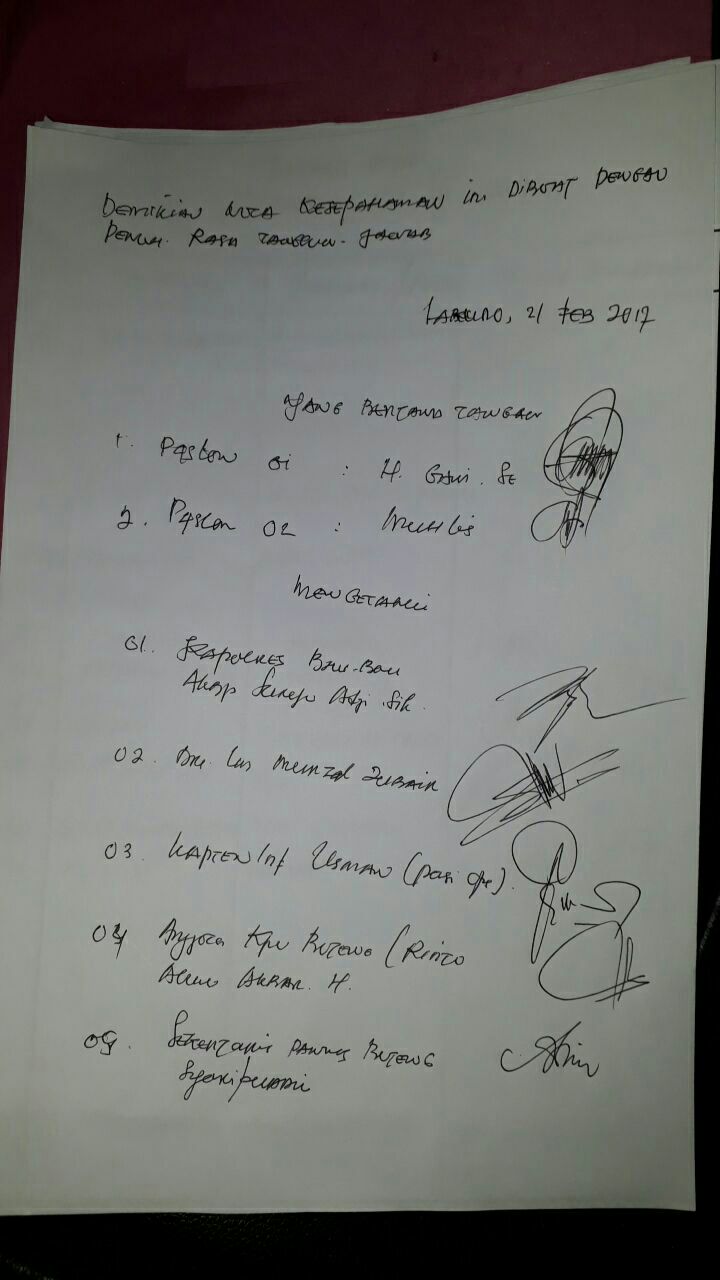 DEMIKIAN NOTA KESEPAHAMAN ini DIBUAT DENGAN
PENUH RASA TANGGUNG JAWAB
21 FEB 2017
YANG BERTANDA TANGAN
1. Paslon 01 : H. GANI. SE
2. Paslon 02 : MUCHLIS
MENGETAHUI
01. KAPOLRES BAU-BAU
AKBP Suryo Aji. Sik.
02.
03. KAPTEN Inf USMAN (pasi ops).
04 Anggota KPU BUTENG (RINTO
AKBAR. H.
05. SEKRETARIS PANWAS BUTENG